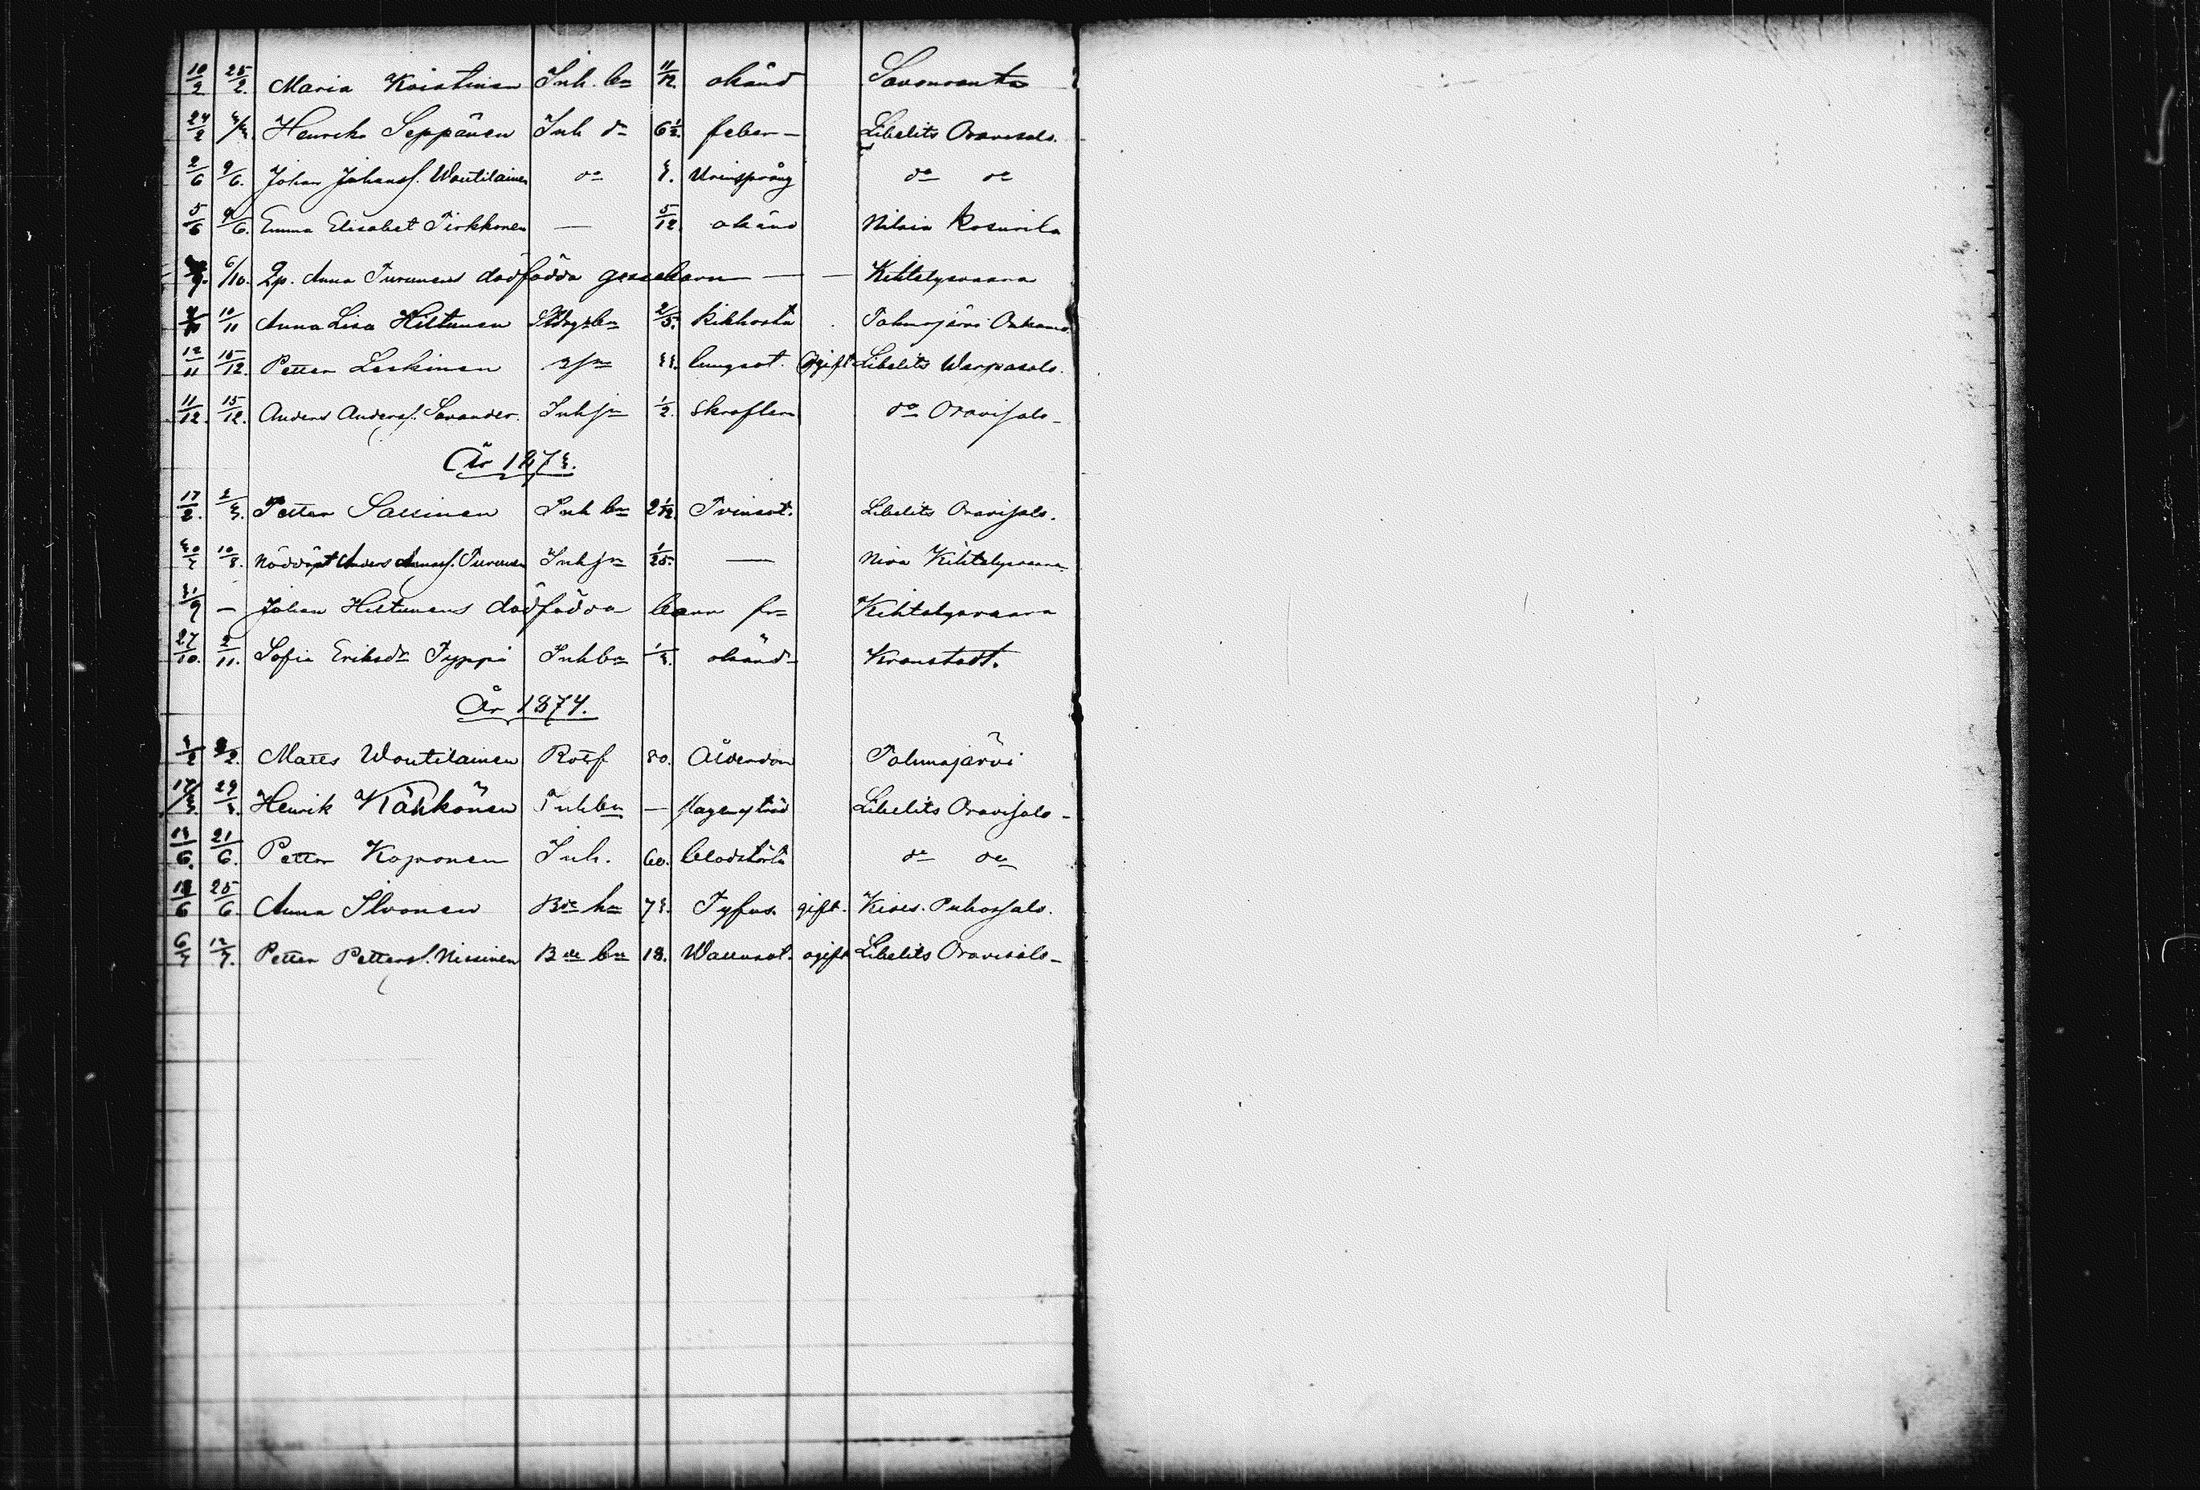 10/2 25/2. Maria Koistinen Inh. bn 11/12. okänd Savonranta
24/2 3/3. Henriks Seppänen Inh dr 6 1/2. feber – Libelits Oravisalo.
2/6 9/6. Johan Johanss. Woutilainen do 3. Urinsprång do do
5/6 9/6. Emma Elisabet Pirkkonen — 5/12. okänd Nilsiä
6/10. Qp. Anna Turunens dödfödda gossebarn — — Kihtelysvaara
10/11 Anna Lisa Hiltunen 2/5. kikhosta Tohmajärvi Onkamo
12/11 15/12. Petter Leskinen 33. lungsot. Ogift Libelits Warpasalo.
11/12. 15/12. Anders Anderss. Savander. Inhsn 1/2. skrofler do Oravisalo –
År 1873.
17/2. 2/3. Petter Sallinen Inh bn 2 1/12. Tvinsot. Libelits Oravisalo.
10/8. Nöddöpt Anders Annass. Turunen Inhsn 1/25. — Kihtelysvaara
31/9 – Johan Hiltunens dödfödda barn fr Kihtelysvaara
27/10. 2/11. Sofia Eriksdr Typpö Inhbn 1/3. okänd – Kronstadt.
År 1874.
3/2 8/2. Matts Woutilainen Rotf 80. Ålderdom Tohmajärvi
17/3. 29/3. Henrik Kähkönen Inhbn — Libelits Oravisalo –
13/6. 21/6. Petter Kaponen Inh. 60. blodstört do do
18/6 25/6. Anna Ilvonen Bde hu 73. Tyfus. gift. Kides. Puhossalo.
6/7 12/7. Petter Petterss. Nissinen Bde bn 18. Wattusot. ogift Libelits Oravisalo –